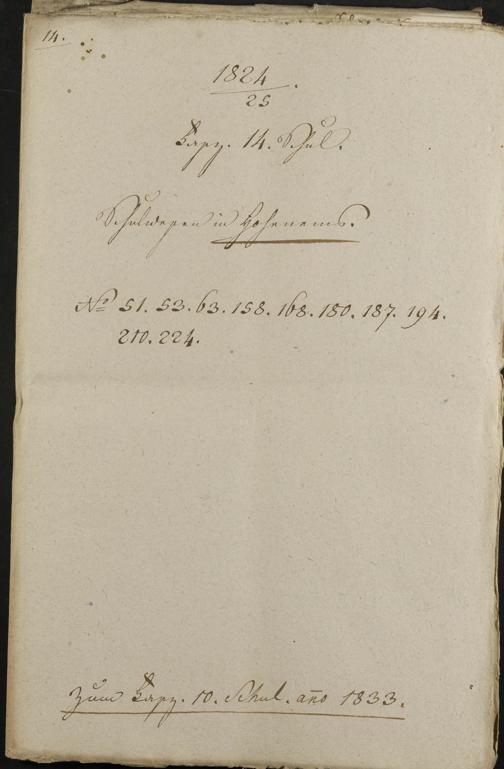 14.
1824
25
Fasz. 14. Schul.
Schulwesen in Hohenems.
No 51. 53. 63. 158. 168. 180. 187. 194.
210. 224.
Zum Fasz. 10. Schul. año 1833.